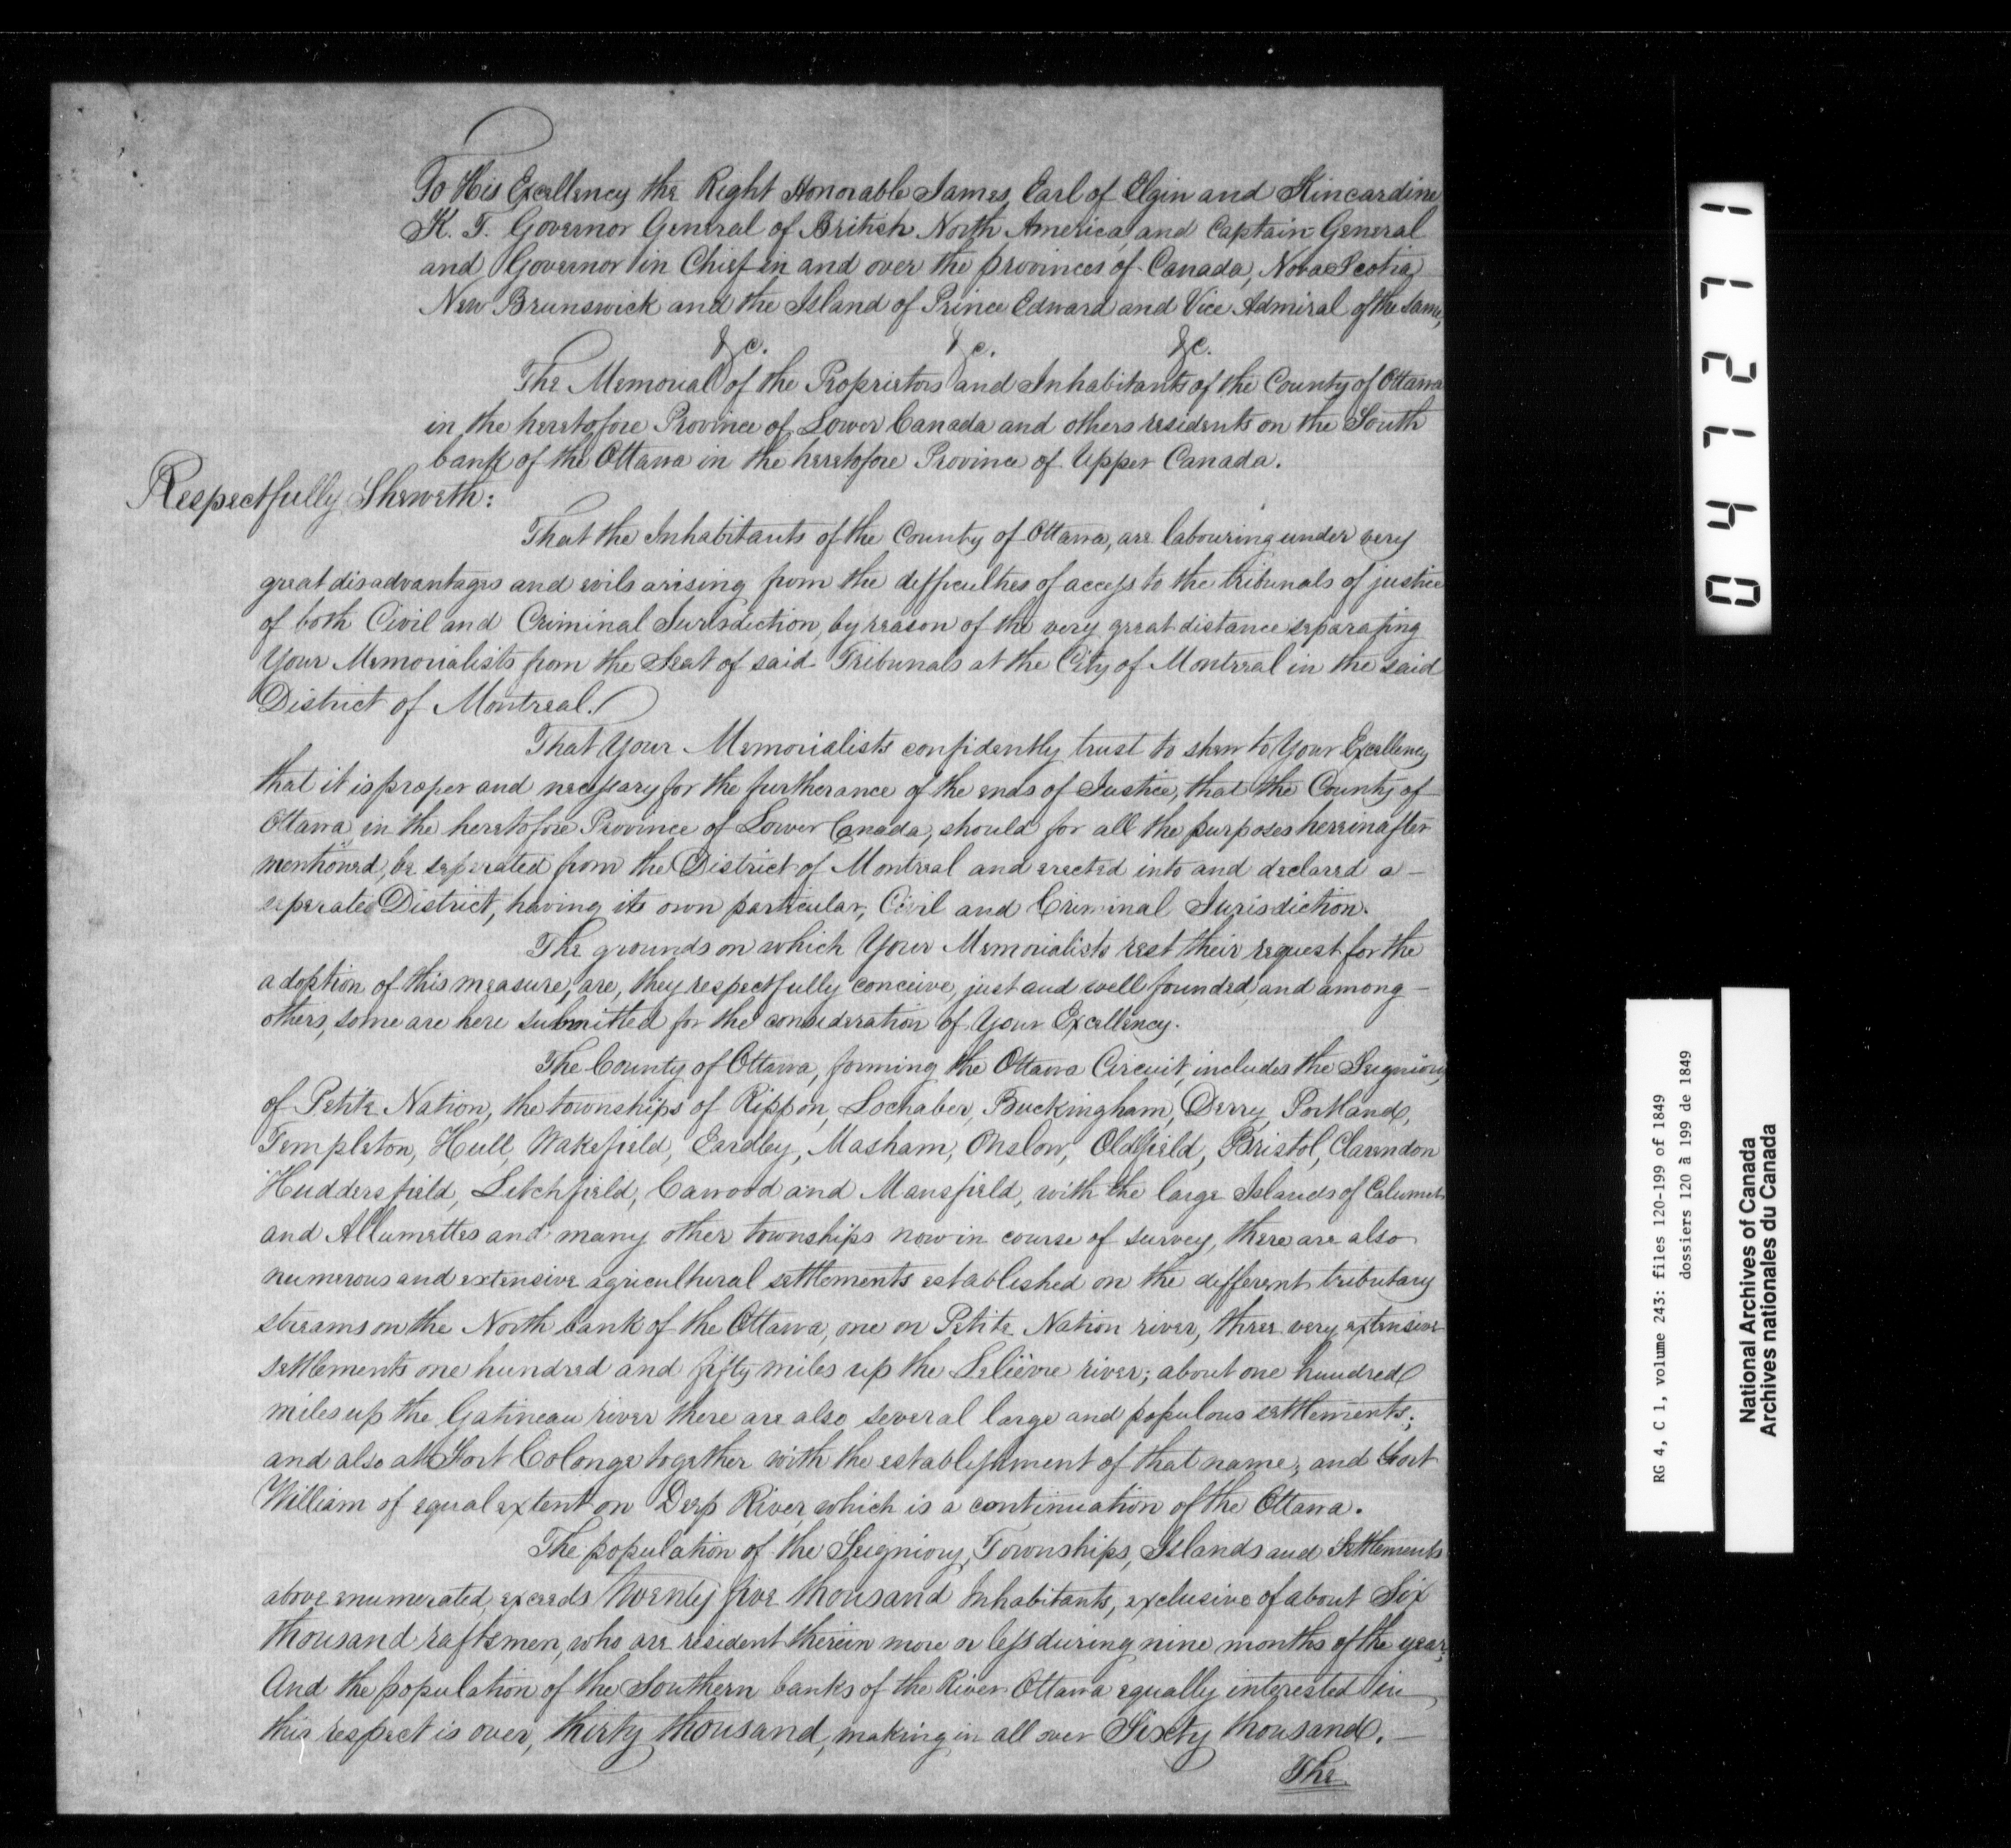 To His Excellency the Right Honorable James, Earl of Elgin and Kincardine
K. T. Governor General of British North America, and Captain General
and Governor in Chief in and over the provinces of Canada, Nova Scotia,
New Brunswick and the Island of Prince Edward and Vice Admiral of the same,
&c. &c. &c.
The Memorial of the Proprietors and Inhabitants of the County of Ottawa
in the heretofore Province of Lower Canada and others residents on the South
bank of the Ottawa in the heretofore Province of Upper Canada.
Respectfully Sheweth:
That the Inhabitants of the County of Ottawa, are labouring under very
great disadvantages and evils arising from the difficulties of access to the tribunals of justice
of both Civil and Criminal Jurisdiction, by reason of the very great distance separating
Your Memorialists from the Seat of said Tribunals at the City of Montreal in the said
District of Montreal.
That Your Memorialists confidently trust to shew to Your Excellency
that it is proper and necessary for the furtherance of the ends of Justice, that the County of
Ottawa in the heretofore Province of Lower Canada, should for all the purposes hereinafter
mentioned, be seperated from the District of Montreal and erected into and declared a –
seperate District, having its own particular, Civil and Criminal Jurisdiction.
The grounds on which Your Memorialists rest their request for the
adoption of this measure, are, they respectfully conceive, just and well founded, and among –
others, some are here submitted for the consideration of Your Excellency.
The County of Ottawa, forming the Ottawa Circuit, includes the Seigniory
of Petite Nation, the townships of Rippon, Lochaber, Buckingham, Derry, Portland,
Templeton, Hull, Wakefield, Eardley, Masham, Onslow, Oldfield, Bristol, Clarendon
Huddersfield, Litchfield, Cawood and Mansfield, with the large Islands of Calumet
and Allumettes and many other townships now in course of survey, there are also
numerous and extensive agricultural settlements established on the different tributary
streams on the North bank of the Ottawa, one on Petite Nation river, three very extensive
settlements one hundred and fifty miles up the Lelièvre river; about one hundred
miles up the Gatineau river there are also several large and populous settlements;
and also at Fort Colonge together with the establishment of that name, and Fort
William of equal extent on Deep River, which is a continuation of the Ottawa.
The population of the Seigniory, Townships, Islands and Settlements
above enumerated, exceeds twenty five thousand Inhabitants, exclusive of about Six
thousand raftsmen, who are resident therein more or less during nine months of the year;
And the population of the Southern banks of the River Ottawa equally interested in
this respect is over, thirty thousand, making in all over Sixty thousand. –
The
047271
RG 4, C 1, volume 243: files 120-199 of 1849
dossiers 120 à 199 de 1849
National Archives of Canada
Archives nationales du Canada